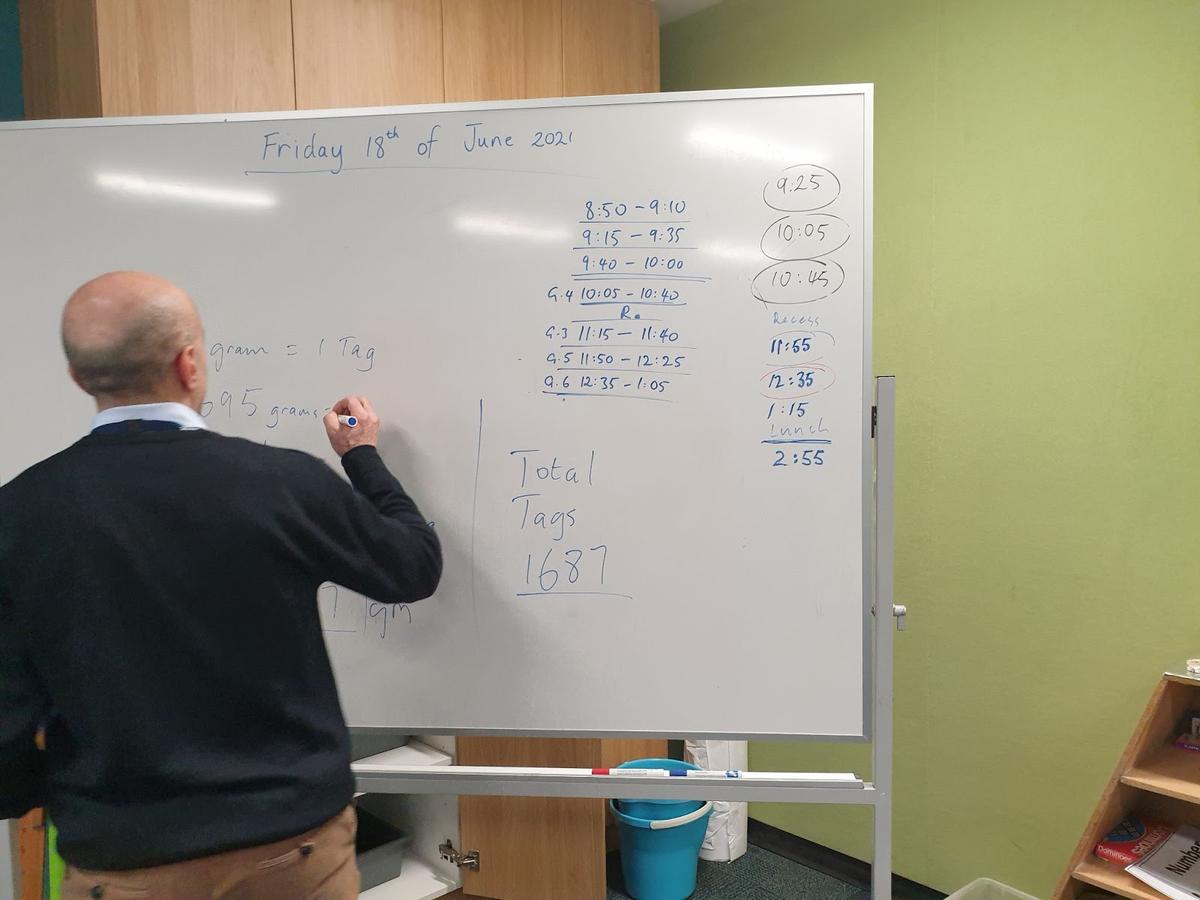 Friday 18th of June 2021
gram = 1 Tag
695 grams =
7 1gm
8:50 - 9:10
9:15 - 9:35
9:40 - 10:00
G.4 10:05 - 10:40
R.
G.3 11:15 - 11:40
G.5 11:50 - 12:25
G.6 12:35 - 1:05
Total
Tags
1687
9:25
10:05
10:45
Recess
11:55
12:35
1:15
Lunch
2:55
Dominoes
Number